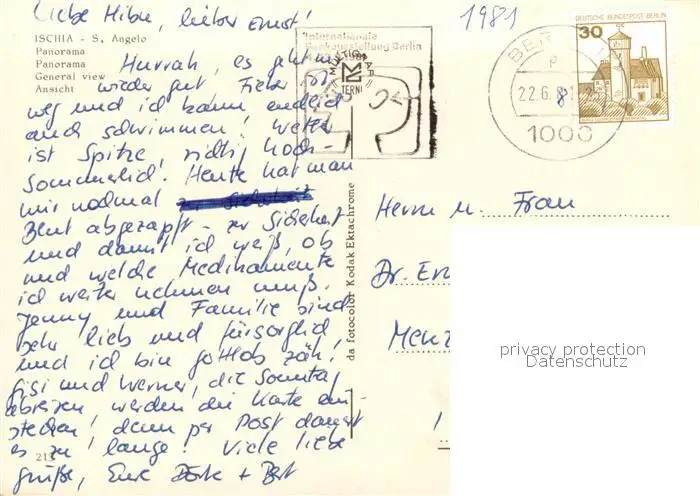 Liebe Hilde, lieber Ernst!
ISCHIA - S. Angelo
Panorama
Panorama
General view
Ansicht
Hurrah, es geht mir
wieder gut. Fieber ist
weg und ich kann endlich
auch schwimmen! Wetter
ist Spitze, richtig hoch-
sommerlid. Heute hat man
mir nochmal
Blut abgezapft - zur Sicherheit
und damit ich weiß, ob
und welche Medikamente
ich weiter nehmen muß.
Jenny und Familie sind
sehr lieb und fürsorglich
und ich bin gottlob zäh!
Gisi und Werner, die Sonntag
abreisen, werden die Karte ein-
stecken, denn per Post dauert
es zu lange! Viele liebe
Grüße, Eure
213
da fotocolor Kodak Ektachrome
Internationale
Funkausstellung Berlin
TERNI
1981
DEUTSCHE BUNDESPOST BERLIN
30
BER
22.6.8
1000
Herrn u. Frau
Dr.
Menz
privacy protection
Datenschutz